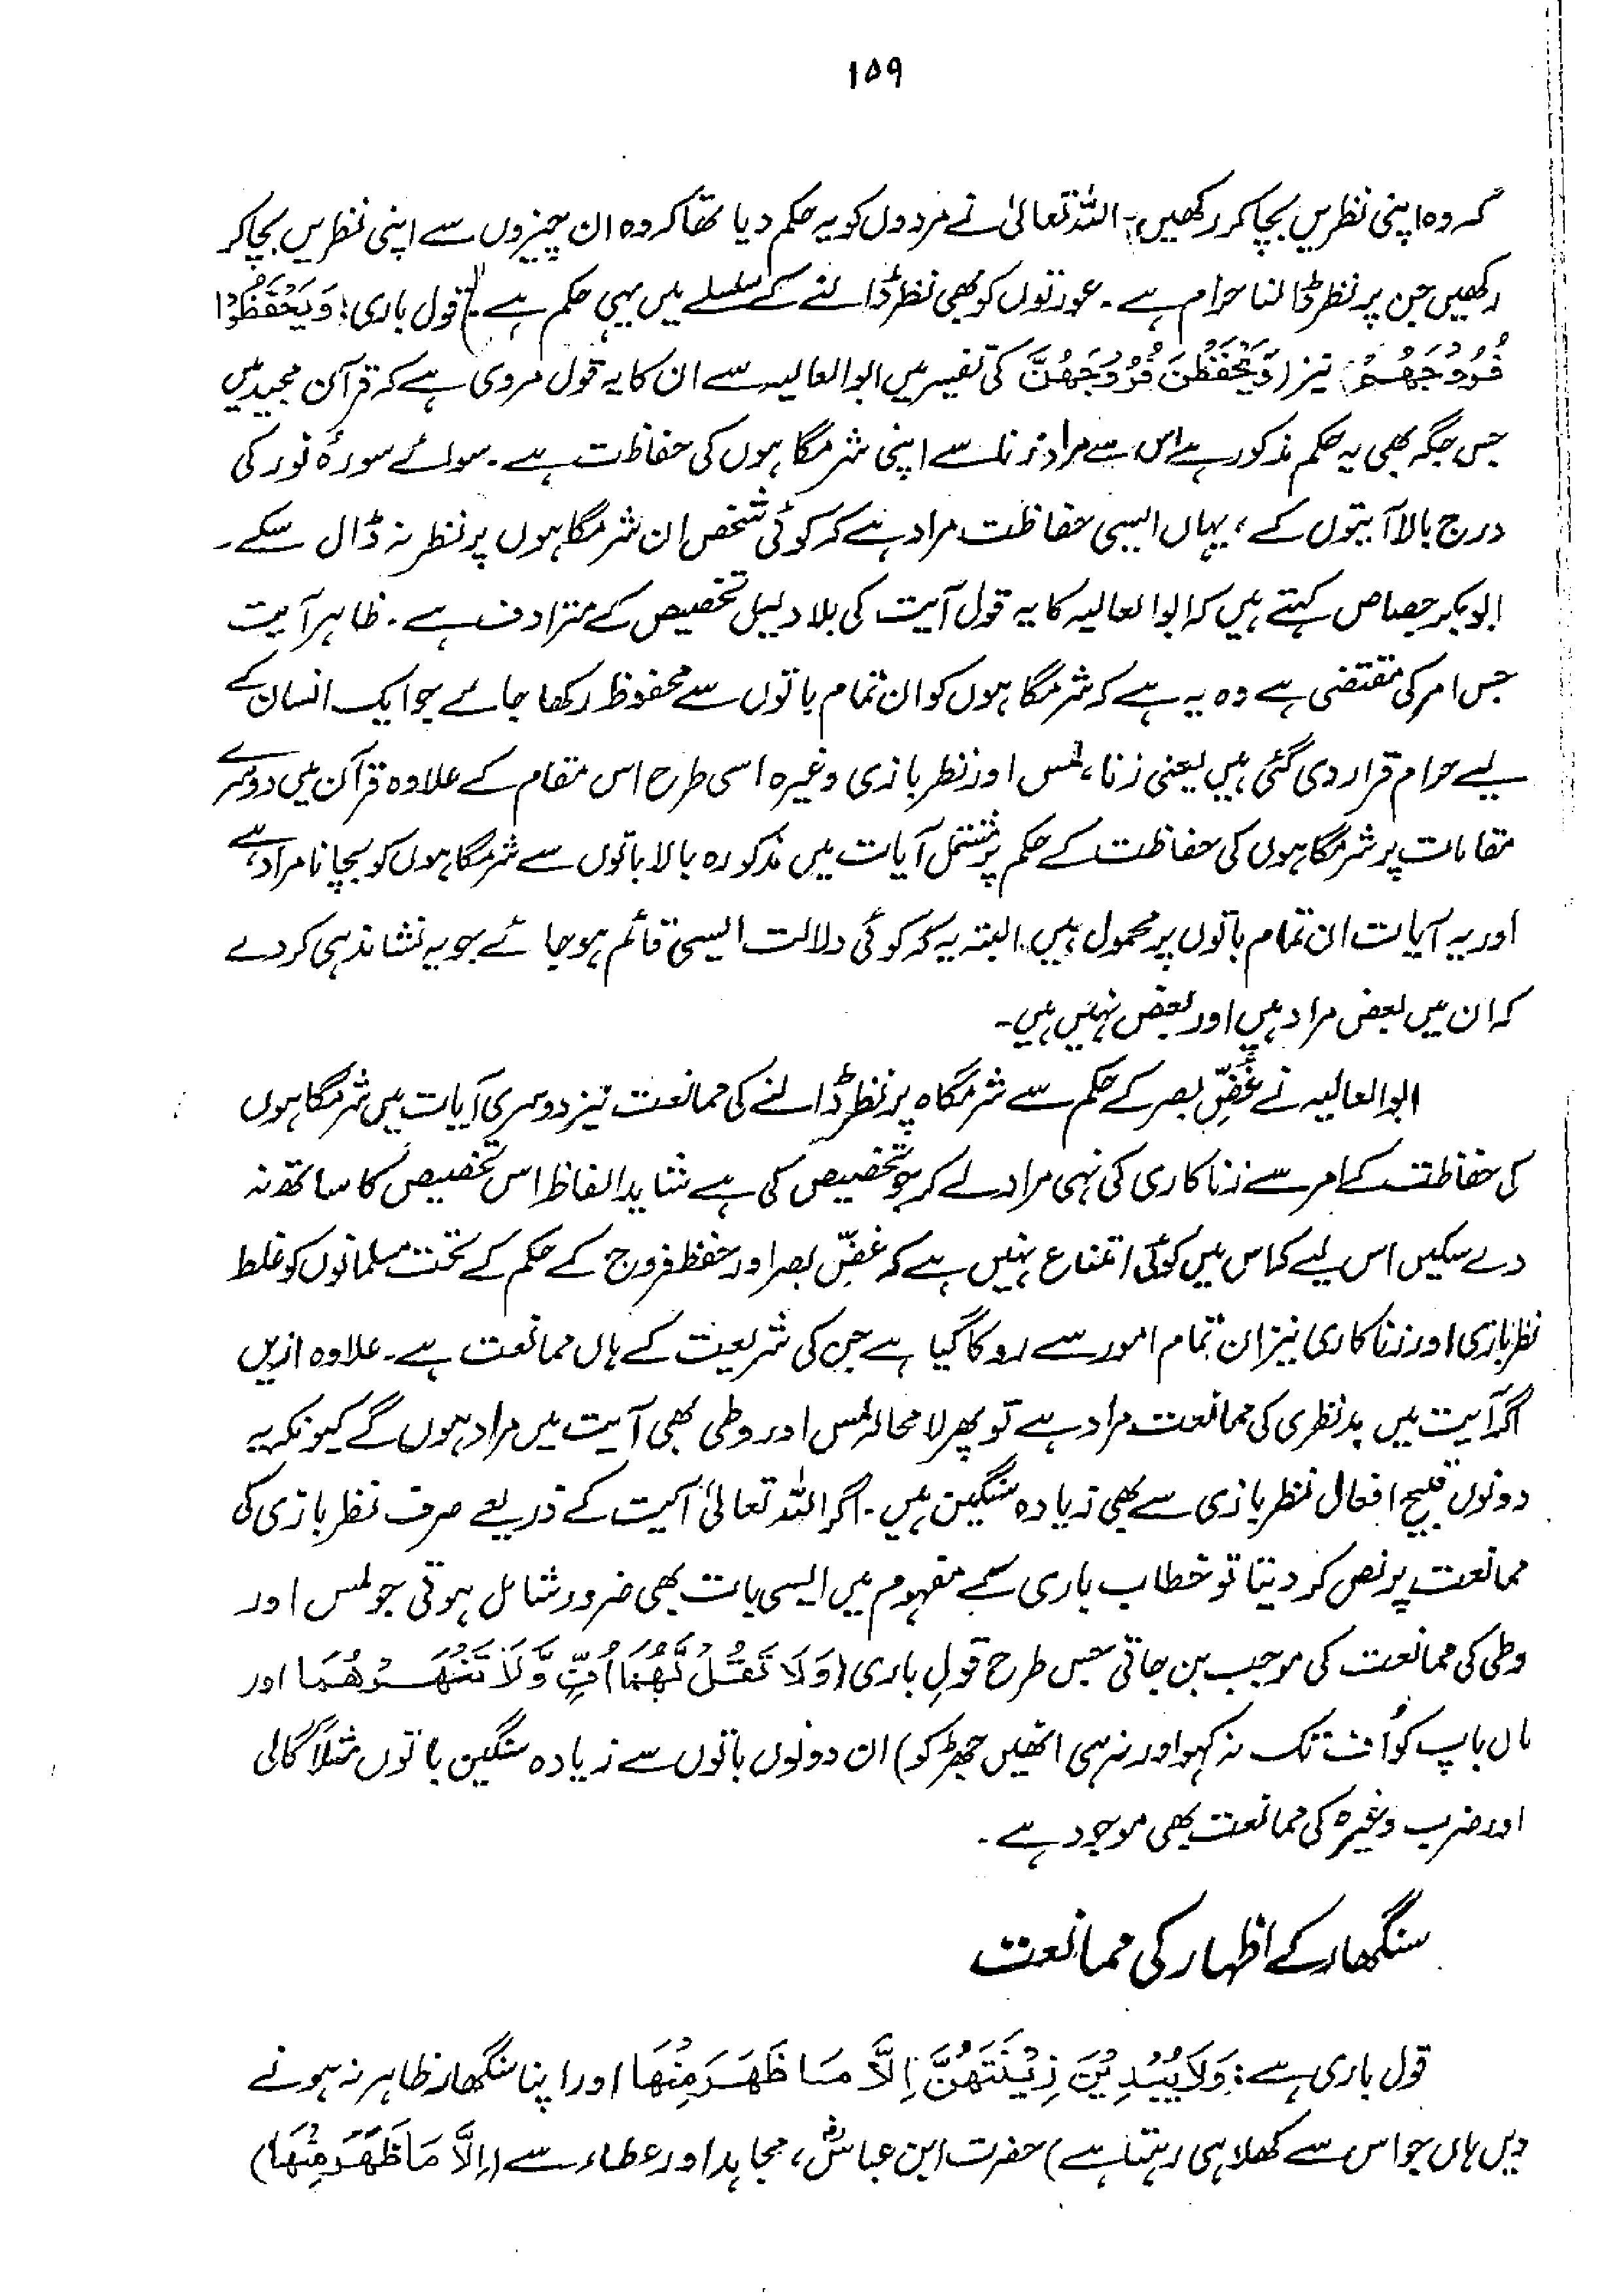 ۱۵۹
کہ وہ اپنی نظریں بچا کر رکھیں، اللہ تعالیٰ نے مردوں کو یہ حکم دیا تھا کہ وہ ان چیزوں سے اپنی نظریں بچا کر
رکھیں جن پر نظر ڈالنا حرام ہے۔ عورتوں کو بھی نظر ڈالنے کے سلسلے میں یہی حکم ہے۔ قول باری: (وَیَحْفَظُوْا
فُرُوْجَهُمْ) نیز (وَیَحْفَظْنَ فُرُوْجَهُنَّ کی تفسیر میں ابوالعالیہ سے ان کا یہ قول مروی ہے کہ قرآن مجید میں
جس جگہ بھی یہ حکم مذکور ہے اس سے مراد زنا سے اپنی شرمگاہوں کی حفاظت ہے۔ سوائے سورۂ نور کی
درج بالا آیتوں کے، یہاں ایسی حفاظت مراد ہے کہ کوئی شخص ان شرمگاہوں پر نظر نہ ڈال سکے۔
ابوبکر جصاص کہتے ہیں کہ ابوالعالیہ کا یہ قول آیت کی بلا دلیل تخصیص کے مترادف ہے۔ ظاہر آیت
جس امر کی مقتضی ہے وہ یہ ہے کہ شرمگاہوں کو ان تمام باتوں سے محفوظ رکھا جائے جو ایک انسان کے
لیے حرام قرار دی گئی ہیں یعنی زنا، لمس اور نظر بازی وغیرہ اسی طرح اس مقام کے علاوہ قرآن میں دوسرے
مقامات پر شرمگاہوں کی حفاظت کے حکم پر مشتمل آیات میں مذکورہ بالا باتوں سے شرمگاہوں کو بچانا مراد ہے
اور یہ آیات ان تمام باتوں پر محمول ہیں۔ البتہ یہ کہ کوئی دلالت ایسی قائم ہو جائے جو یہ نشاندہی کر دے
کہ ان میں بعض مراد ہیں اور بعض نہیں ہیں۔
ابوالعالیہ نے غضِّ بصر کے حکم سے شرمگاہ پر نظر ڈالنے کی ممانعت نیز دوسری آیات میں شرمگاہوں
کی حفاظت کے امر سے زنا کاری کی نہی مراد لے کر جو تخصیص کی ہے شاید الفاظ اس تخصیص کا ساتھ نہ
دے سکیں اس لیے کہ اس میں کوئی امتناع نہیں ہے کہ غضِّ بصر اور حفظ فروج کے حکم کے تحت مسلمانوں کو غلط
نظر بازی اور زنا کاری نیز ان تمام امور سے روکا گیا ہے جن کی شریعت کے ہاں ممانعت ہے۔ علاوہ ازیں
اگر آیت میں بدنظری کی ممانعت مراد ہے تو پھر لامحالہ لمس اور وطی بھی آیت میں مراد ہوں گے کیونکہ یہ
دونوں قبیح افعال نظر بازی سے بھی زیادہ سنگین ہیں۔ اگر اللہ تعالیٰ آیت کے ذریعے صرف نظر بازی کی
ممانعت پر نص کر دیتا تو خطاب باری کے مفہوم میں ایسی بات بھی ضرور شامل ہوتی جو لمس اور
وطی کی ممانعت کی موجب بن جاتی جس طرح قولِ باری (وَلَا تَقُلْ لَّهُمَا اُفٍّ وَّلَا تَنْهَرْهُمَا اور
ماں باپ کو اُف تک نہ کہو اور نہ ہی انھیں جھڑکو) ان دونوں باتوں سے زیادہ سنگین باتوں مثلاً گالی
اور ضرب وغیرہ کی ممانعت بھی موجود ہے۔
سنگھار کے اظہار کی ممانعت
قول باری ہے: وَلَا یُبْدِیْنَ زِیْنَتَهُنَّ اِلَّا مَا ظَهَرَ مِنْهَا اور اپنا سنگھار ظاہر نہ ہونے
دیں ہاں جو اس سے کھلا ہی رہتا ہے) حضرت ابن عباسؓ، مجاہد اور عطاء سے (اِلَّا مَا ظَهَرَ مِنْهَا)